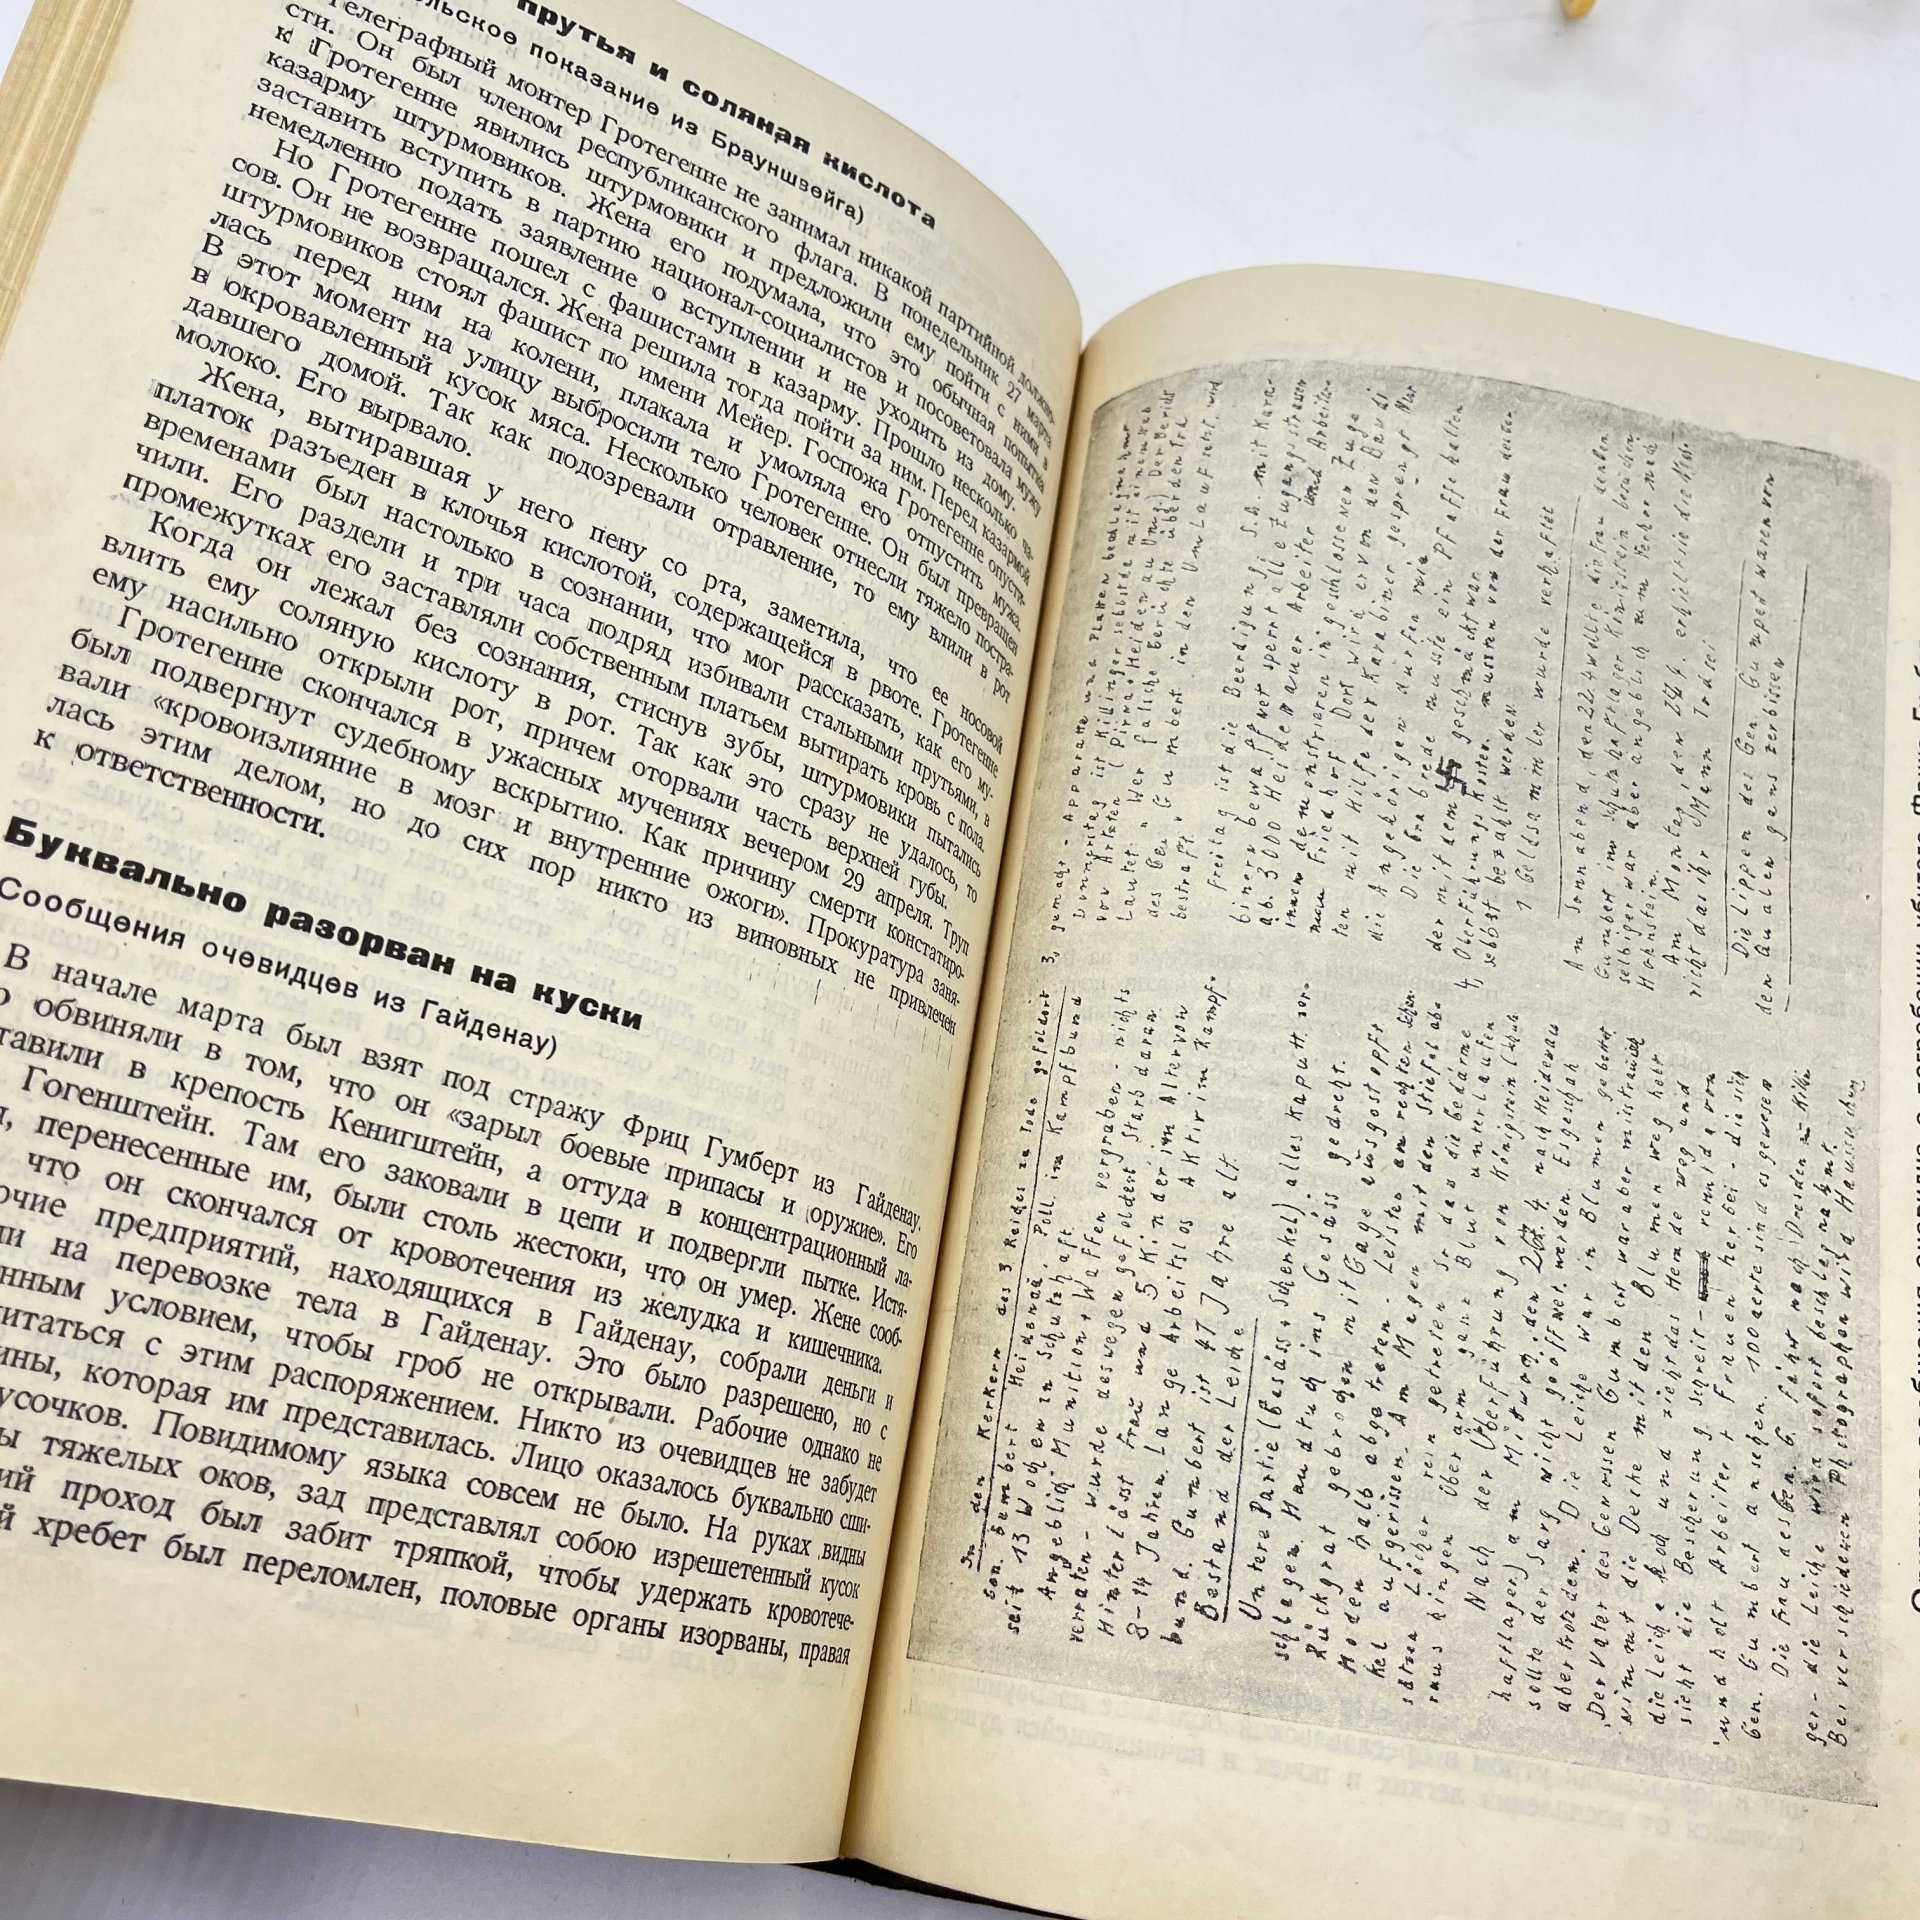 прутья и соляная кислота
показание из Брауншвейга)
Телеграфный монтер Гротегенне не занимал никакой партийной должно-
сти. Он был членом республиканского флага. В понедельник 27 марта
к Гротегенне явились штурмовики и предложили ему пойти с ними в
казарму штурмовиков. Жена его подумала, что это обычная попытка
заставить вступить в партию национал-социалистов и посоветовала мужу
немедленно подать заявление о вступлении и не уходить из дому.
Но Гротегенне пошел с фашистами в казарму. Прошло несколько ча-
сов. Он не возвращался. Жена решила тогда пойти за ним. Перед казармой
штурмовиков стоял фашист по имени Мейер. Госпожа Гротегенне опусти-
лась перед ним на колени, плакала и умоляла его отпустить мужа.
В этот момент на улицу выбросили тело Гротегенне. Он был превращен
в окровавленный кусок мяса. Несколько человек отнесли тяжело постра-
давшего домой. Так как подозревали отравление, то ему влили в рот
молоко. Его вырвало.
Жена, вытиравшая у него пену со рта, заметила, что ее носовой
платок разъеден в клочья кислотой, содержащейся в рвоте. Гротегенне
временами был настолько в сознании, что мог рассказать, как его му-
чили. Его раздели и три часа подряд избивали стальными прутьями, в
промежутках его заставляли собственным платьем вытирать кровь с пола.
Когда он лежал без сознания, стиснув зубы, штурмовики пытались
влить ему соляную кислоту в рот. Так как это сразу не удалось, то
ему насильно открыли рот, причем оторвали часть верхней губы.
Гротегенне скончался в ужасных мучениях вечером 29 апреля. Труп
был подвергнут судебному вскрытию. Как причину смерти констатиро-
вали «кровоизлияние в мозг и внутренние ожоги». Прокуратура заня-
лась этим делом, но до сих пор никто из виновных не привлечен
к ответственности.
Буквально разорван на куски
Сообщения очевидцев из Гайденау)
В начале марта был взят под стражу Фриц Гумберт из Гайденау.
обвиняли в том, что он «зарыл боевые припасы и оружие». Его
в крепость Кенигштейн, а оттуда в концентрационный ла-
Гогенштейн. Там его заковали в цепи и подвергли пытке. Истя-
перенесенные им, были столь жестоки, что он умер. Жене сооб-
что он скончался от кровотечения из желудка и кишечника.
предприятий, находящихся в Гайденау, собрали деньги и
на перевозке тела в Гайденау. Это было разрешено, но с
условием, чтобы гроб не открывали. Рабочие однако не
с этим распоряжением. Никто из очевидцев не забудет
которая им представилась. Лицо оказалось буквально сши-
Повидимому языка совсем не было. На руках видны
тяжелых оков, зад представлял собою изрешетенный кусок
проход был забит тряпкой, чтобы удержать кровотече-
хребет был переломлен, половые органы изорваны, правая
In den Kerkern des 3 Reiches zu Tode gefoldert
Gen. Gumbert Heidenau. Poll. im Kampfbund
seit 13 Wochen in Schutzhaft.
Angeblich Munition + Waffen vergraben - nichts
verraten - wurde deswegen gefoldert Starb daran
Hinterlässt Frau und 5 Kinder im Alter von
8-14 Jahren. Lange Arbeitslos Aktiv im Kampf-
bund. Gumbert ist 47 Jahre alt.
Bestand der Leiche
Untere Partie (Gesäss + Schenkel) alles Kaputt ser-
schlagen. Handtuch ins Gesäss gedreht.
Rückgrat gebrochen mit Gage ausgestopft
Hoden halb abgetreten. Leisten am rechten Schen-
kel aufgerissen. Am Magen mit den Stiefel ab-
sätzen Löcher rein getreten so das die Gedärme
raus hingen Überarm ganz Blut unterlaufen
Nach der Überführung von Königstein (Schutz
haftlager) am Mittwoch, den 26. 4. nach Heidenau
sollte der Sarg nicht geöffnet werden. Es geschah
aber trotzdem. Die Leiche war in Blumen gebettet
Der Vater des Genossen Gumbert war aber misstrauisch
nimmt die Decke mit den Blumen weg hebt
die Leiche hoch und zieht das Hemde weg und
sieht die Bescherung, schreit - rennt davon
und holt Arbeiter + Frauen herbei - die sich
Gen. Gumbert ansehen. 100 derte sind es gewesen
Die Frau des Gen. G. fährt nach Dresden - Killin
ger - die Leiche wird sofort beschlagnahmt.
Bei verschiedenen Photographen wird Haussuchung
3, gemacht - Apparate und Platten beschlagnahmt
Donnerstag ist Killinger selbst da mit einem Stab
von Ärzten (Pirna + Heidenau Umg.) Der Bericht
lautet: Wer falsche Gerüchte über den Tod
des Gen. Gumbert in den Umlauf setzt, wird
bestraft.
Freitag ist die Beerdigung. S.A. mit Kara-
binern bewaffnet sperrt alle Zugangsstrassen
ab. 3000 Heidenauer Arbeiter und Arbeiter-
innen demonstrieren in geschlossenen Zuge
zum Friedhof Dort wird er von den Banditen
mit Hilfe der Karabiner gesprengt Nur
die Angehörigen dürfen rein
Die Grabrede musste ein Pfaffe halten
der mit dem 卐 geschmückt war
4, Oberführungs Kosten mussten von der Frau selber
selbst bezahlt werden
1 Geldsammler wurde verhaftet
Am Sonnabend, den 22. 4 wollte die Frau den Gen
Gumbert ins Schutzhaftlager Königstein besuchen
selbiger war aber angeblich zum Verhör nach
Hohnstein.
Am Montag, den 24. 4. erhielt sie die Nach-
richt das ihr Mann Tod sei
Die Lippen des Gen Gumpert waren von
den Qualen ganz zerbissen